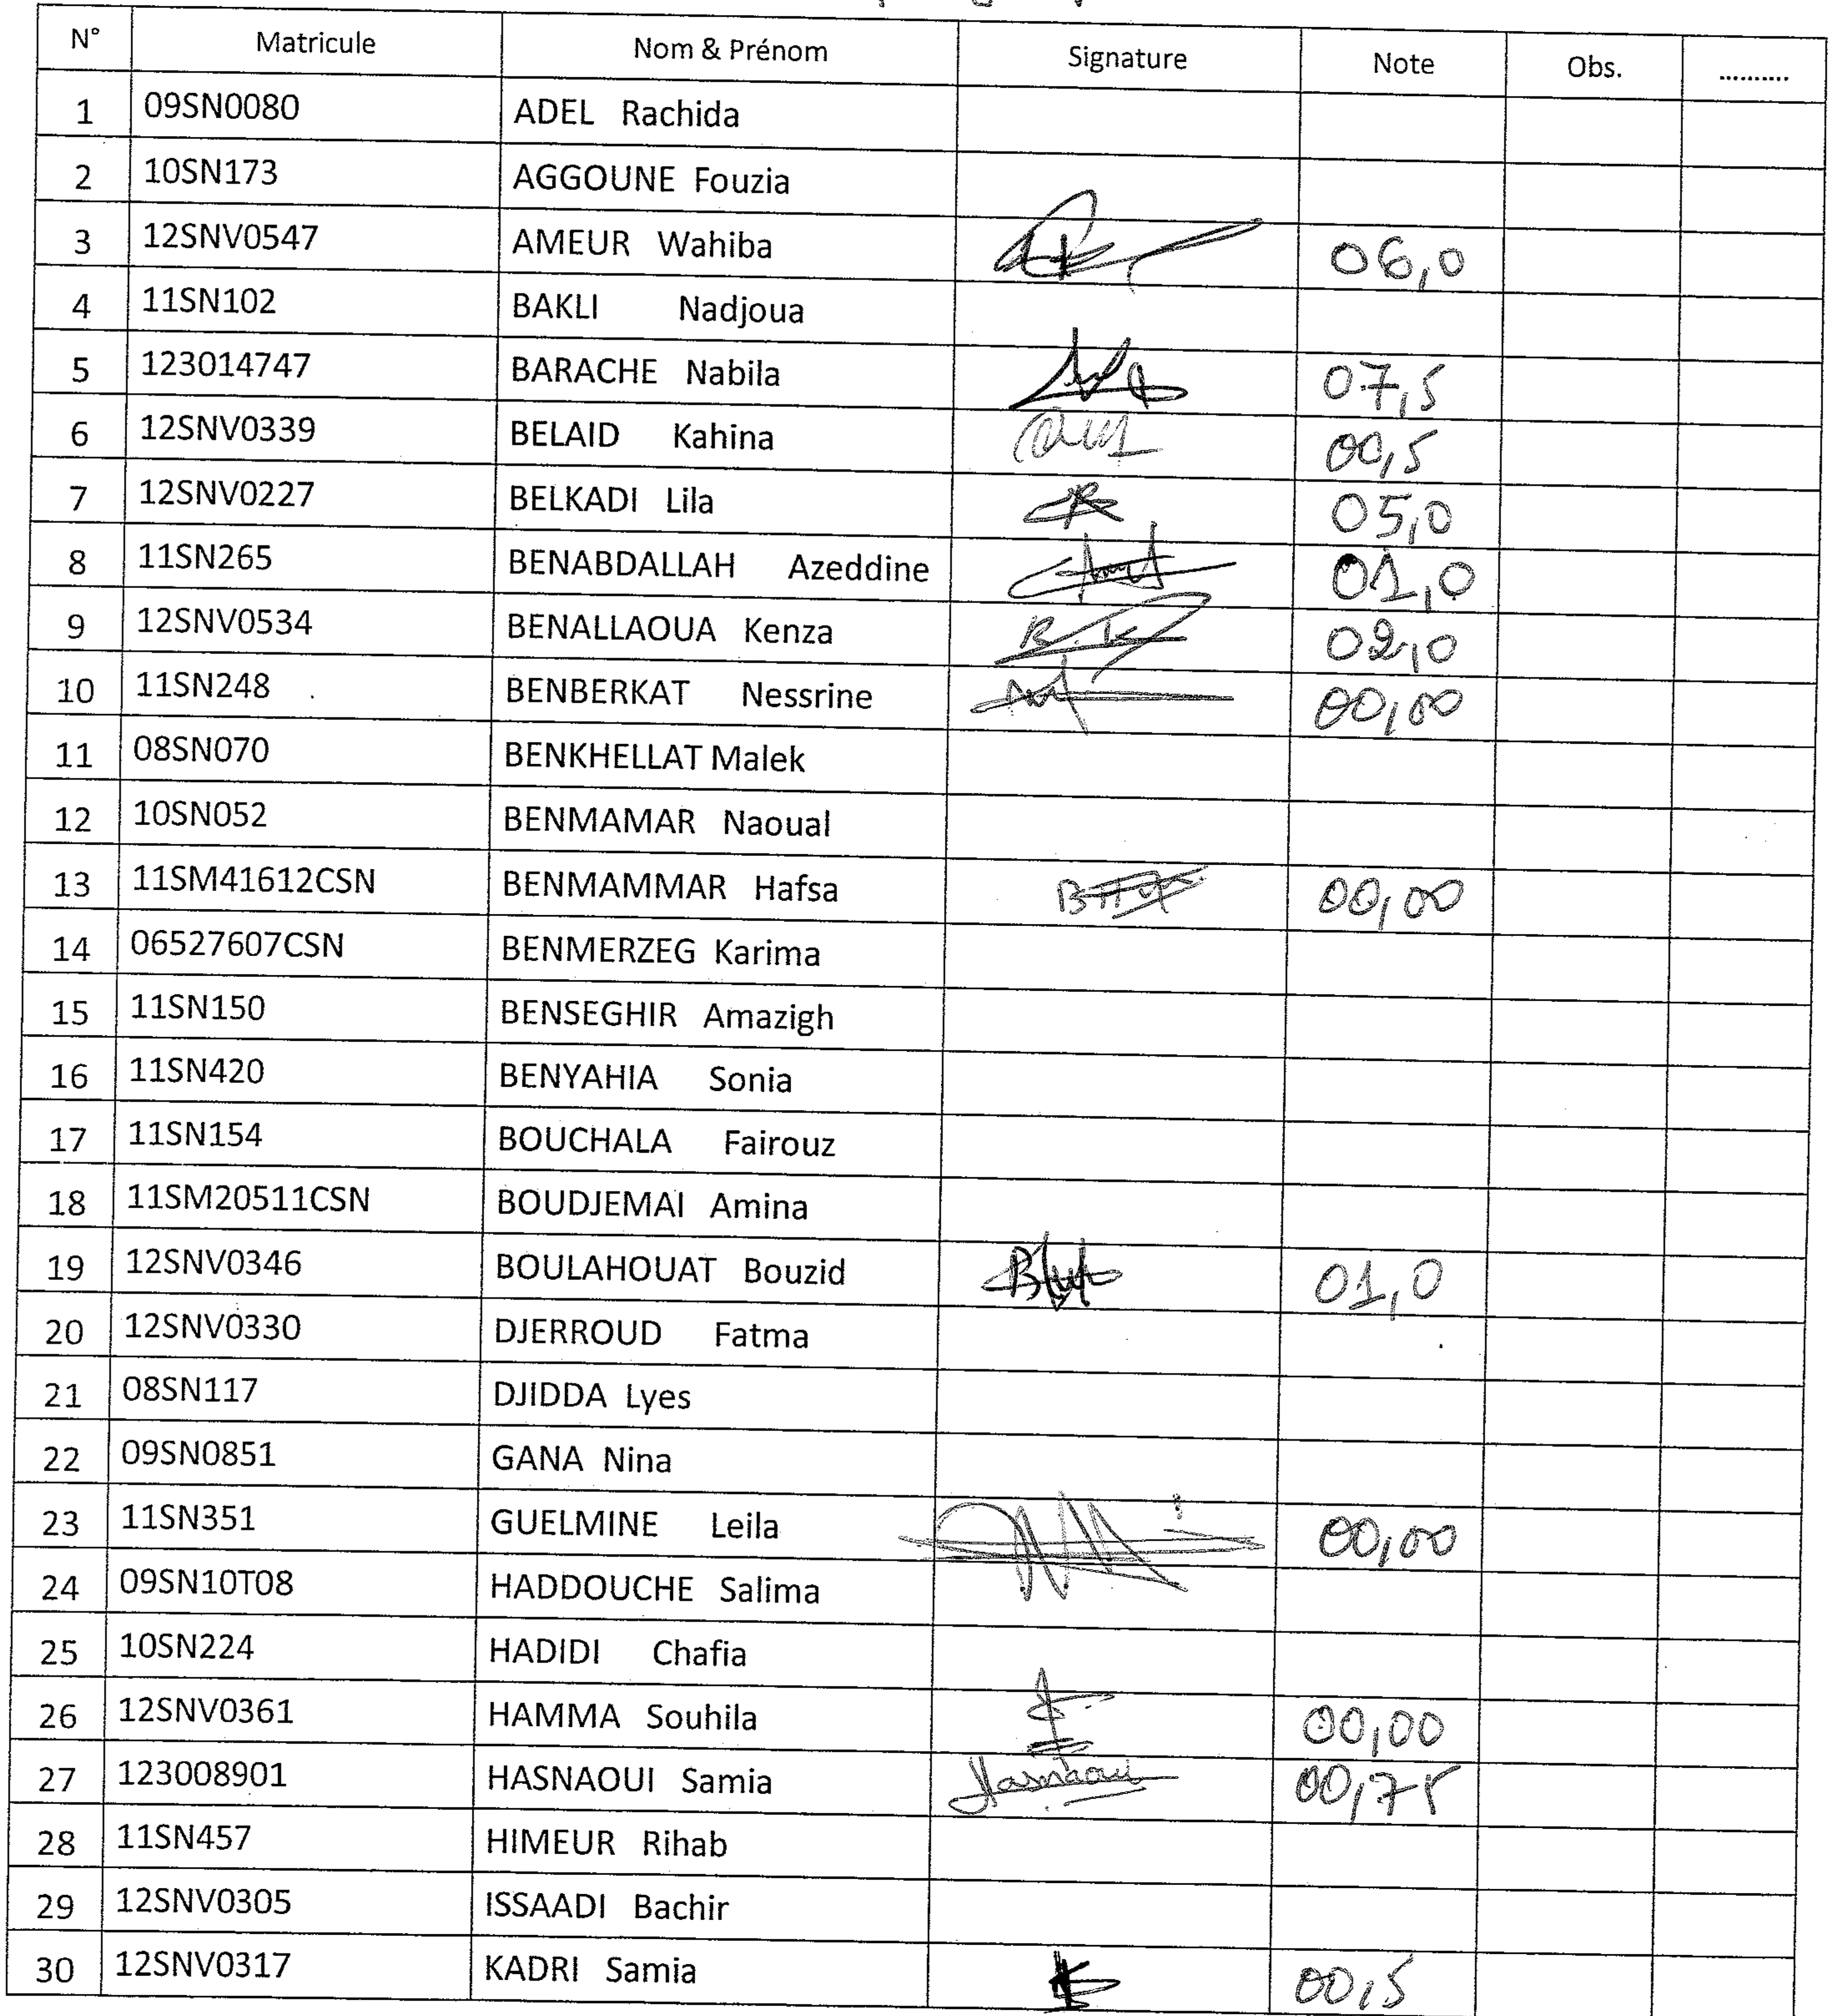 N° Matricule Nom & Prénom Signature Note Obs. ..........
1 09SN0080 ADEL Rachida
2 10SN173 AGGOUNE Fouzia
3 12SNV0547 AMEUR Wahiba 06,0
4 11SN102 BAKLI Nadjoua
5 123014747 BARACHE Nabila 07,5
6 12SNV0339 BELAID Kahina 00,5
7 12SNV0227 BELKADI Lila 05,0
8 11SN265 BENABDALLAH Azeddine 01,0
9 12SNV0534 BENALLAOUA Kenza B.K 02,0
10 11SN248 BENBERKAT Nessrine 00,00
11 08SN070 BENKHELLAT Malek
12 10SN052 BENMAMAR Naoual
13 11SM41612CSN BENMAMMAR Hafsa 00,00
14 06527607CSN BENMERZEG Karima
15 11SN150 BENSEGHIR Amazigh
16 11SN420 BENYAHIA Sonia
17 11SN154 BOUCHALA Fairouz
18 11SM20511CSN BOUDJEMAI Amina
19 12SNV0346 BOULAHOUAT Bouzid 01,0
20 12SNV0330 DJERROUD Fatma
21 08SN117 DJIDDA Lyes
22 09SN0851 GANA Nina
23 11SN351 GUELMINE Leila 00,00
24 09SN10T08 HADDOUCHE Salima
25 10SN224 HADIDI Chafia
26 12SNV0361 HAMMA Souhila 00,00
27 123008901 HASNAOUI Samia Hasnaoui 00,75
28 11SN457 HIMEUR Rihab
29 12SNV0305 ISSAADI Bachir
30 12SNV0317 KADRI Samia 00,5